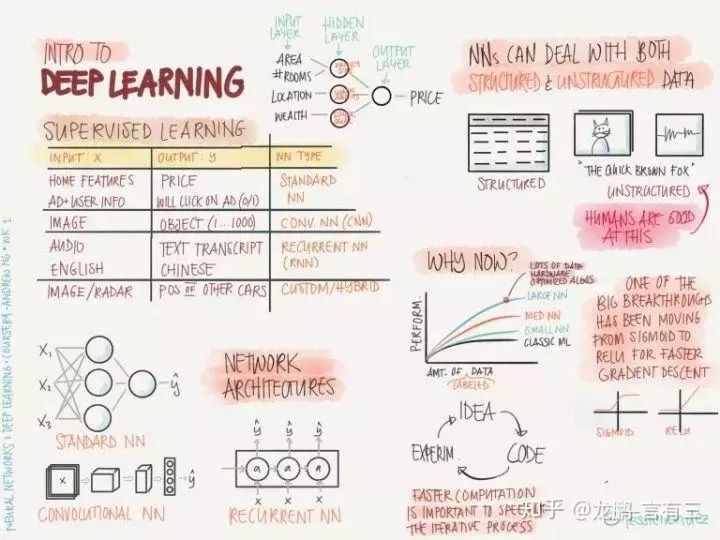 INTRO TO
DEEP LEARNING
INPUT LAYER
HIDDEN LAYER
OUTPUT LAYER
AREA
# ROOMS
LOCATION
WEALTH
PRICE
SUPERVISED LEARNING
INPUT: X OUTPUT: y NN TYPE
HOME FEATURES PRICE STANDARD NN
AD+USER INFO WILL CLICK ON AD (0/1)
IMAGE OBJECT (1...1000) CONV. NN (CNN)
AUDIO TEXT TRANSCRIPT RECURRENT NN (RNN)
ENGLISH CHINESE
IMAGE/RADAR POS OF OTHER CARS CUSTOM/HYBRID
NNs CAN DEAL WITH BOTH
STRUCTURED & UNSTRUCTURED DATA
STRUCTURED
"THE QUICK BROWN FOX"
UNSTRUCTURED
HUMANS ARE GOOD
AT THIS
WHY NOW?
LOTS OF DATA
HARDWARE
OPTIMIZED ALGOS
LARGE NN
MED NN
SMALL NN
CLASSIC ML
PERFORM.
AMT. OF DATA
LABELED
ONE OF THE
BIG BREAKTHROUGHS
HAS BEEN MOVING
FROM SIGMOID TO
RELU FOR FASTER
GRADIENT DESCENT
SIGMOID RELU
NETWORK
ARCHITECTURES
X₁
X₂
X₃
ŷ
STANDARD NN
X
ŷ
CONVOLUTIONAL NN
ŷ ŷ ŷ
a a a
x x x
RECURRENT NN
IDEA
CODE
EXPERIM.
FASTER COMPUTATION
IS IMPORTANT TO SPEED UP
THE ITERATIVE PROCESS
NEURAL NETWORKS & DEEP LEARNING · COURSERA · ANDREW NG · WK 1
知乎 @龙鹏-言有三